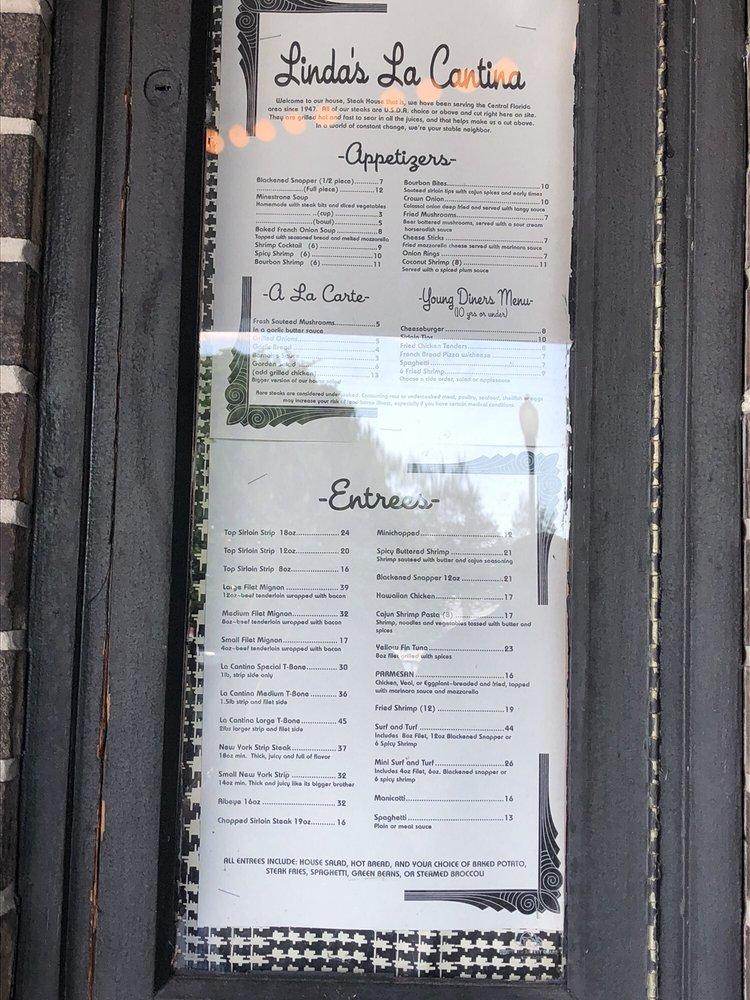 Linda's La Cantina
Welcome to our house, Steak House that is, we have been serving the Central Florida
area since 1947. All of our steaks are U.S.D.A. choice or above and cut right here on site.
They are grilled hot and fast to sear in all the juices, and that helps make us a cut above.
In a world of constant change, we're your stable neighbor.
-Appetizers-
Blackened Snapper (1/2 piece)...........7
......................(Full piece)............12
Minestrone Soup
Homemade with steak bits and diced vegetables
......................(cup)................3
......................(bowl)..............5
Baked French Onion Soup............8
Topped with seasoned bread and melted mozzarella
Shrimp Cocktail (6)....................9
Spicy Shrimp (6)......................10
Bourbon Shrimp (6)..................11
Bourbon Bites...........................10
Sauteed sirloin tips with cajun spices and early times
Crown Onion............................10
Colossal onion deep fried and served with tangy sauce
Fried Mushrooms.......................7
Beer battered mushrooms, served with a sour cream
horseradish sauce
Cheese Sticks............................7
Fried mozzarella cheese served with marinara sauce
Onion Rings..............................7
Coconut Shrimp (8)....................11
Served with a spiced plum sauce
-A La Carte-
Fresh Sauteed Mushrooms............5
In a garlic butter sauce
Grilled Onions..........................5
Garlic Bread............................4
3
Garden Salad...........................6
(add grilled chicken)..................13
Bigger version of our
-Young Diners Menu-
(10 yrs or under)
Cheeseburger...........................8
Sirloin Tips.............................10
Fried Chicken Tenders.................8
French Bread Pizza w/cheese.........7
Spaghetti................................7
6 Fried Shrimp..........................9
Choose a side order, salad or applesauce
Rare steaks are considered undercooked. Consuming raw or undercooked meat, poultry, seafood, shellfish or eggs
may increase your risk of food borne illness, especially if you have certain medical conditions.
-Entrees-
Top Sirloin Strip 18oz.............24
Top Sirloin Strip 12oz.............20
Top Sirloin Strip 8oz..............16
Large Filet Mignon.................39
12oz-beef tenderloin wrapped with bacon
Medium Filet Mignon................32
8oz-beef tenderloin wrapped with bacon
Small Filet Mignon..................17
4oz-beef tenderloin wrapped with bacon
La Cantina Special T-Bone..........30
1lb, strip side only
La Cantina Medium T-Bone..........36
1.5lb strip and filet side
La Cantina Large T-Bone............45
2lbs larger strip and filet side
New York Strip Steak................37
18oz min. Thick, juicy and full of flavor
Small New York Strip................32
14oz min. Thick and juicy like its bigger brother
Ribeye 16oz..........................32
Chopped Sirloin Steak 19oz.........16
Minichopped.........................12
Spicy Buttered Shrimp...............21
Shrimp sauteed with butter and cajun seasoning
Blackened Snapper 12oz.............21
Hawaiian Chicken....................17
Cajun Shrimp Pasta (8)..............17
Shrimp, noodles and vegetables tossed with butter and
spices
Yellow Fin Tuna......................23
8oz filet grilled with spices
PARMESAN...........................16
Chicken, Veal, or Eggplant-breaded and fried, topped
with marinara sauce and mozzarella
Fried Shrimp (12)....................19
Surf and Turf........................44
Includes 8oz Filet, 12oz Blackened Snapper or
6 Spicy Shrimp
Mini Surf and Turf...................26
Includes 4oz Filet, 6oz. Blackened snapper or
6 spicy shrimp
Manicotti.............................16
Spaghetti.............................13
Plain or meat sauce
ALL ENTREES INCLUDE: HOUSE SALAD, HOT BREAD, AND YOUR CHOICE OF BAKED POTATO,
STEAK FRIES, SPAGHETTI, GREEN BEANS, OR STEAMED BROCCOLI